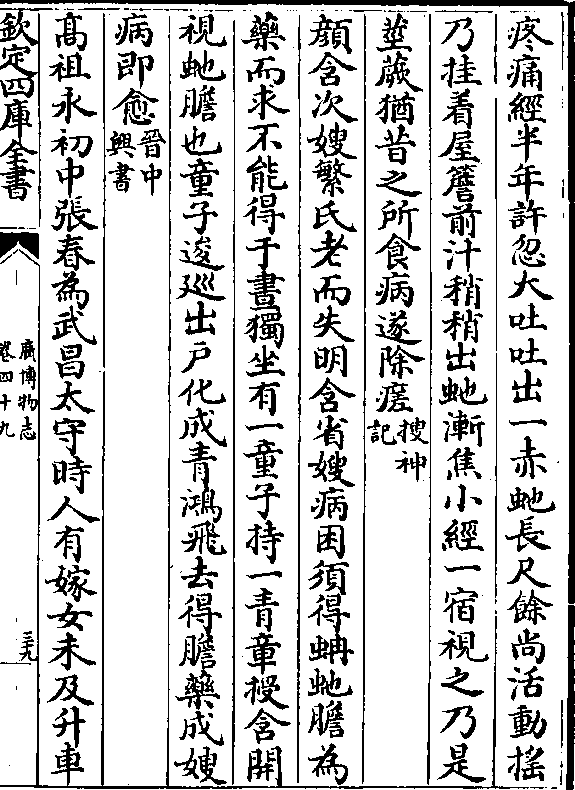 疼痛經半年許忽大吐吐出一赤虵長尺餘尚活動揺
乃挂着屋簷前汁稍稍出虵漸焦小經一宿視之乃是
莖蕨猶昔之所食病遂除瘥搜神記
顔含次嫂繁氏老而失明含省嫂病困須得蚺虵膽為
藥而求不能得于晝獨坐有一童子持一青章授含開
視虵膽也童子逡廵出戶化成青鴻飛去得膽藥成嫂
病即愈晉中興書
髙祖永初中張春為武昌太守時人有嫁女未及升車
欽定四庫全書
廣博物志
卷四十九
三九